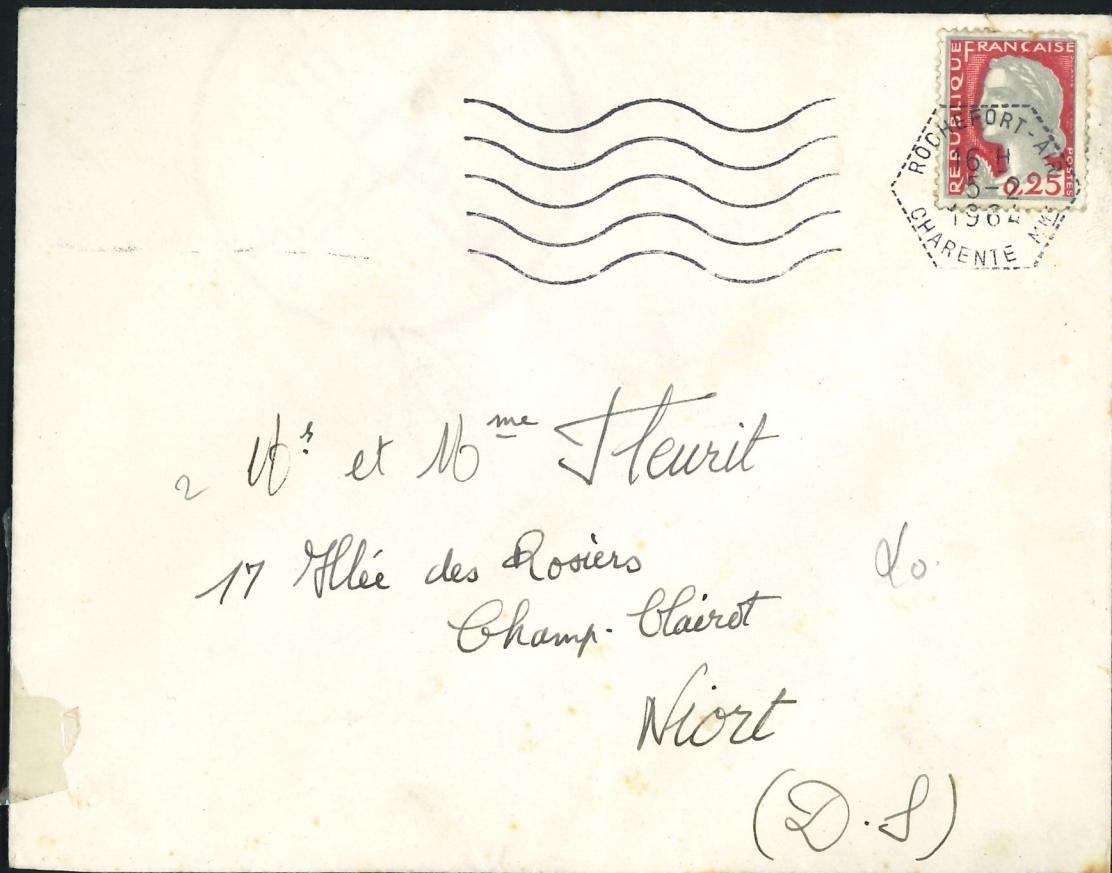 RÉPUBLIQUE FRANÇAISE
POSTES
0,25
ROCHEFORT-AIR
16 H
5-2
1964
CHARENTE MME
Mr et Mme Fleurit
17 Allée des Rosiers
Champ-Clairot
Niort
(D.S)